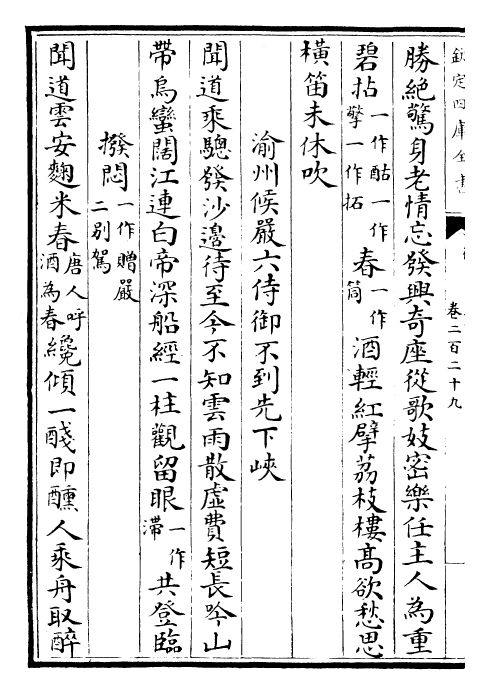 欽定四庫全書
卷二百二十九
勝絶驚身老情忘發興奇座從歌妓密樂任主人為重
碧拈一作酤一作擎一作拓春一作筒酒輕紅擘荔枝樓髙欲愁思
橫笛未休吹
渝州候嚴六侍御不到先下峽
聞道乘驄發沙邉待至今不知雲雨散虚費短長吟山
帶烏蠻闊江連白帝深船經一柱觀留眼一作滯共登臨
撥悶一作贈嚴二别駕
聞道雲安麴米春唐人呼酒為春纔傾一醆即醺人乘舟取醉